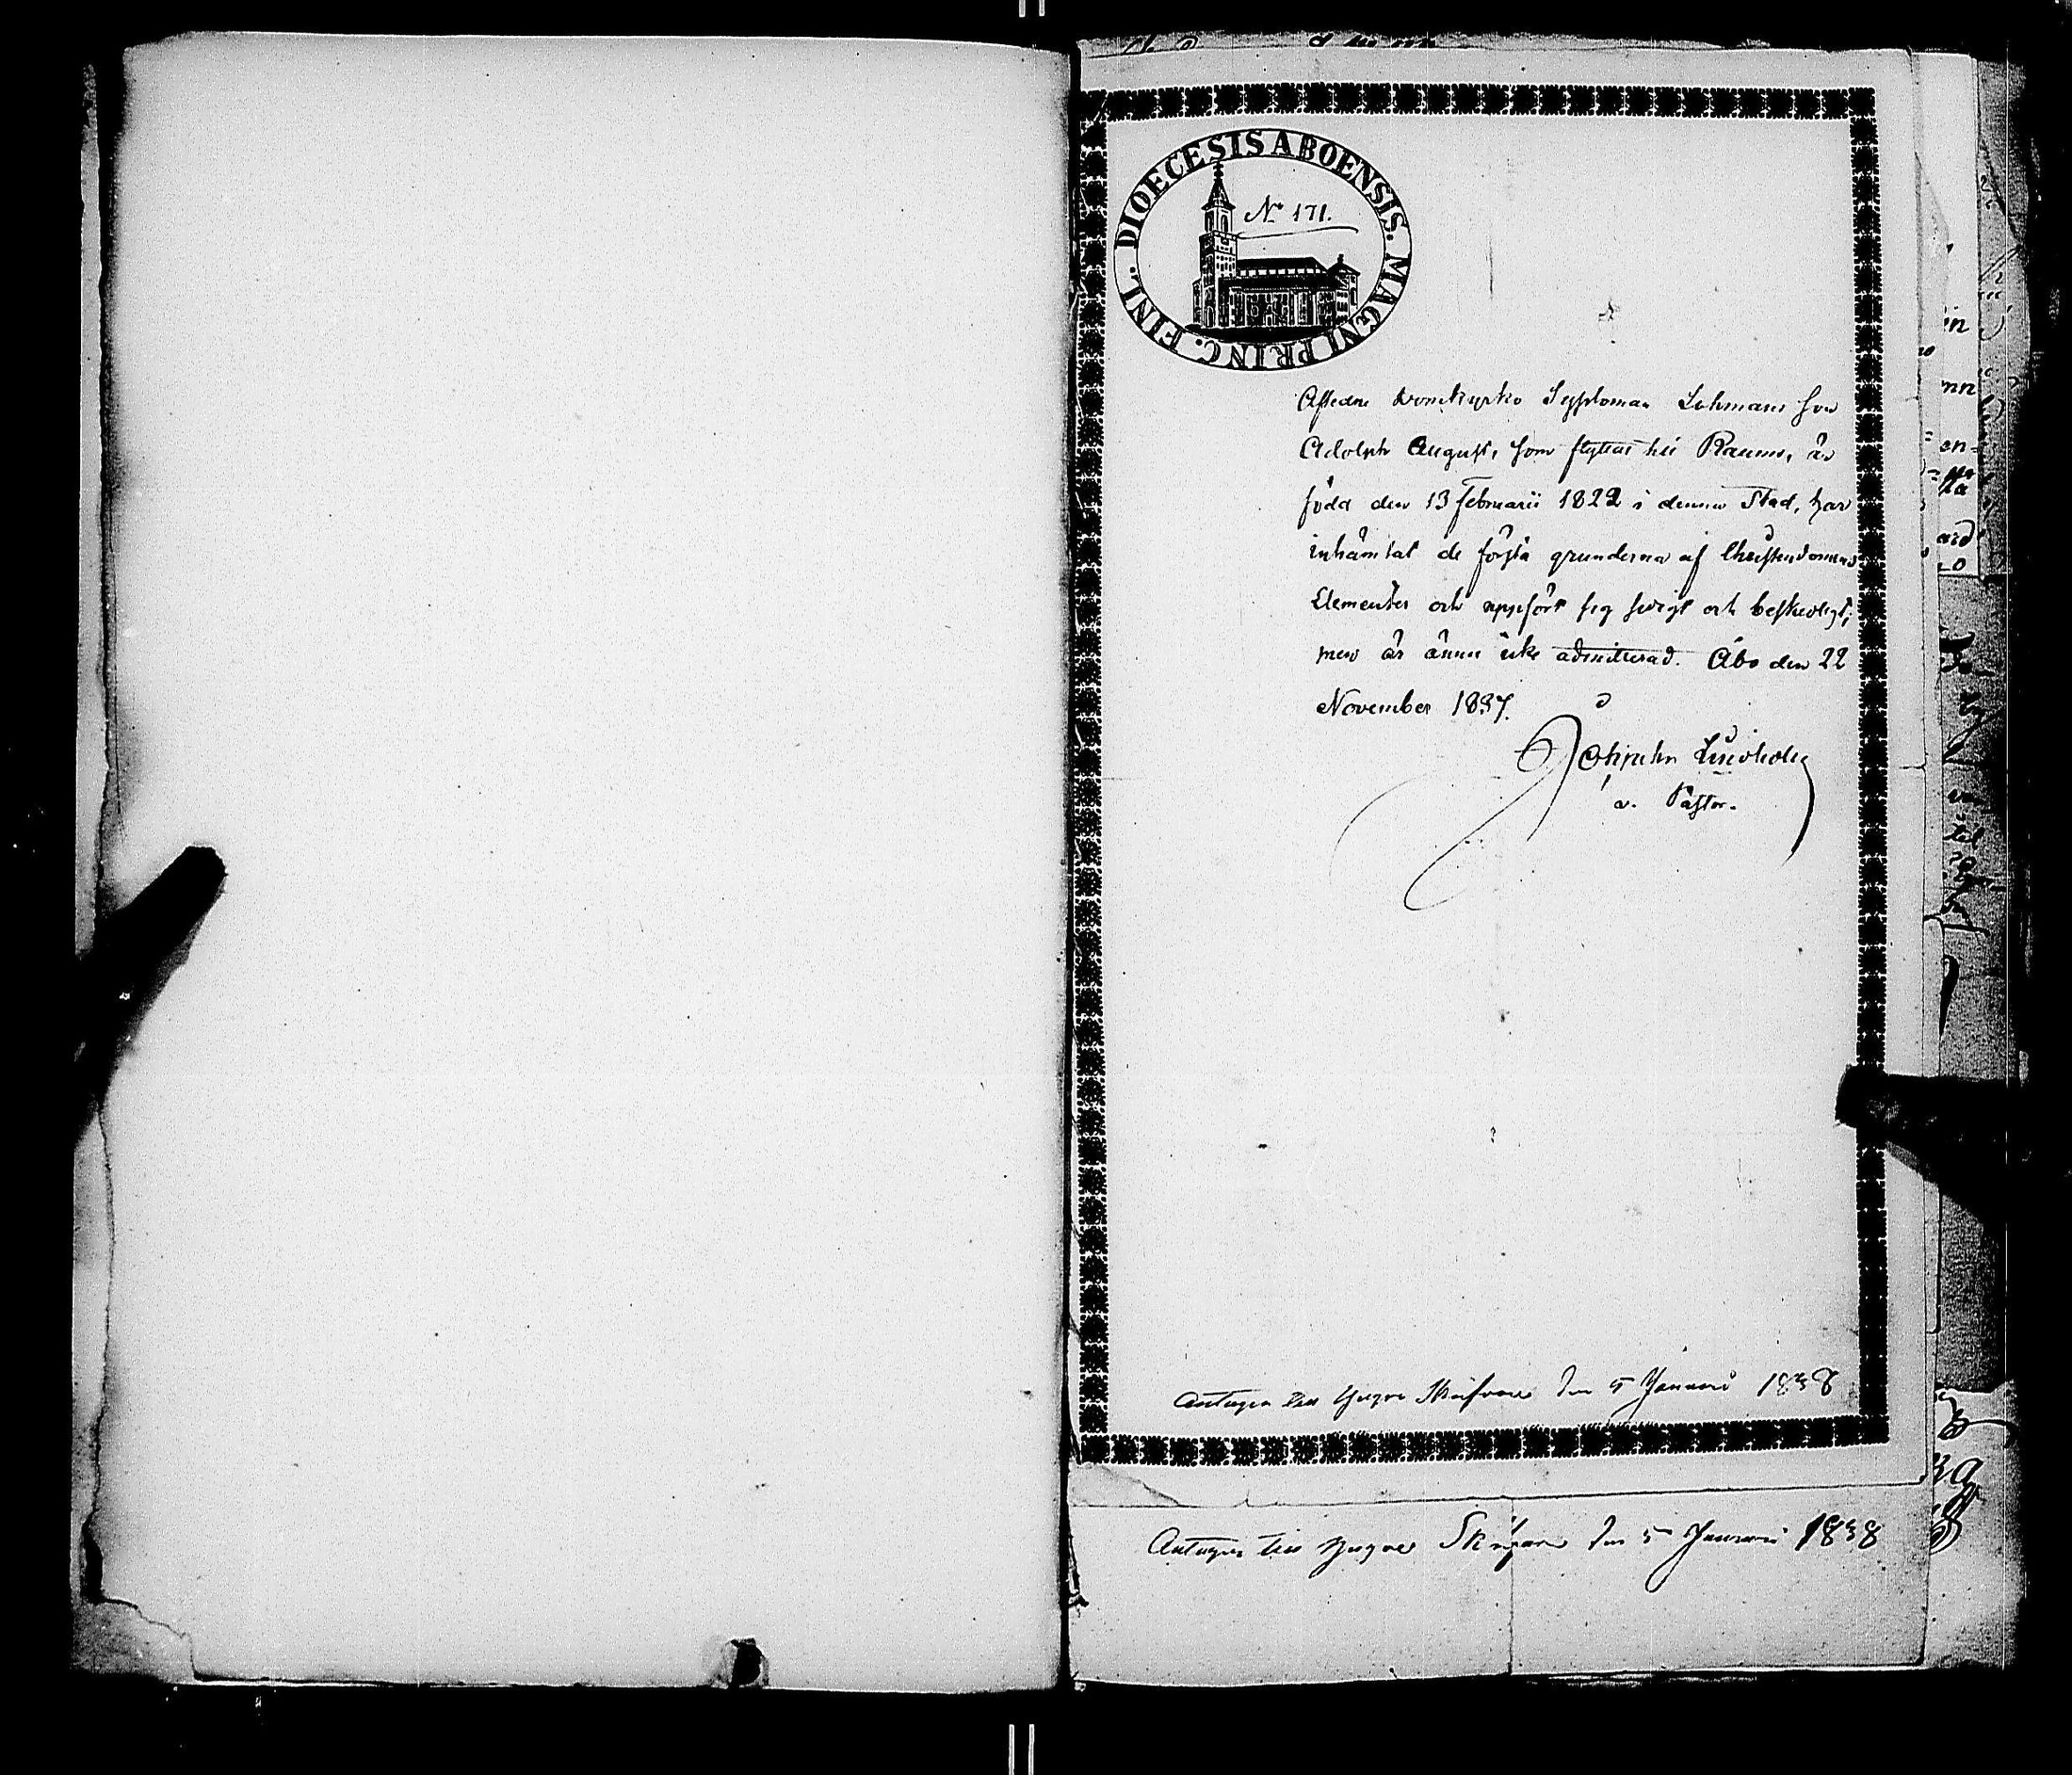 DIOECESIS ABOENSIS. MAGNI PRINC. FINL.
No 171.
Afledne Domkyrko Sysloman Lohmans son
Adolph August, som flyttar till Raumo, är
född den 13 Februarii 1822 i denna Stad, har
inhämtat de första grunderna af Christendomens
Elementer och uppfört sig sedigt och beskedligt;
men är ännu icke admitterad. Åbo den 22
November 1837.
v. Pastor.
Antagen till Yngre Skrifvare den 5 Januarii 1838
Antagen till Yngre Skrifvare den 5 Januarii 1838